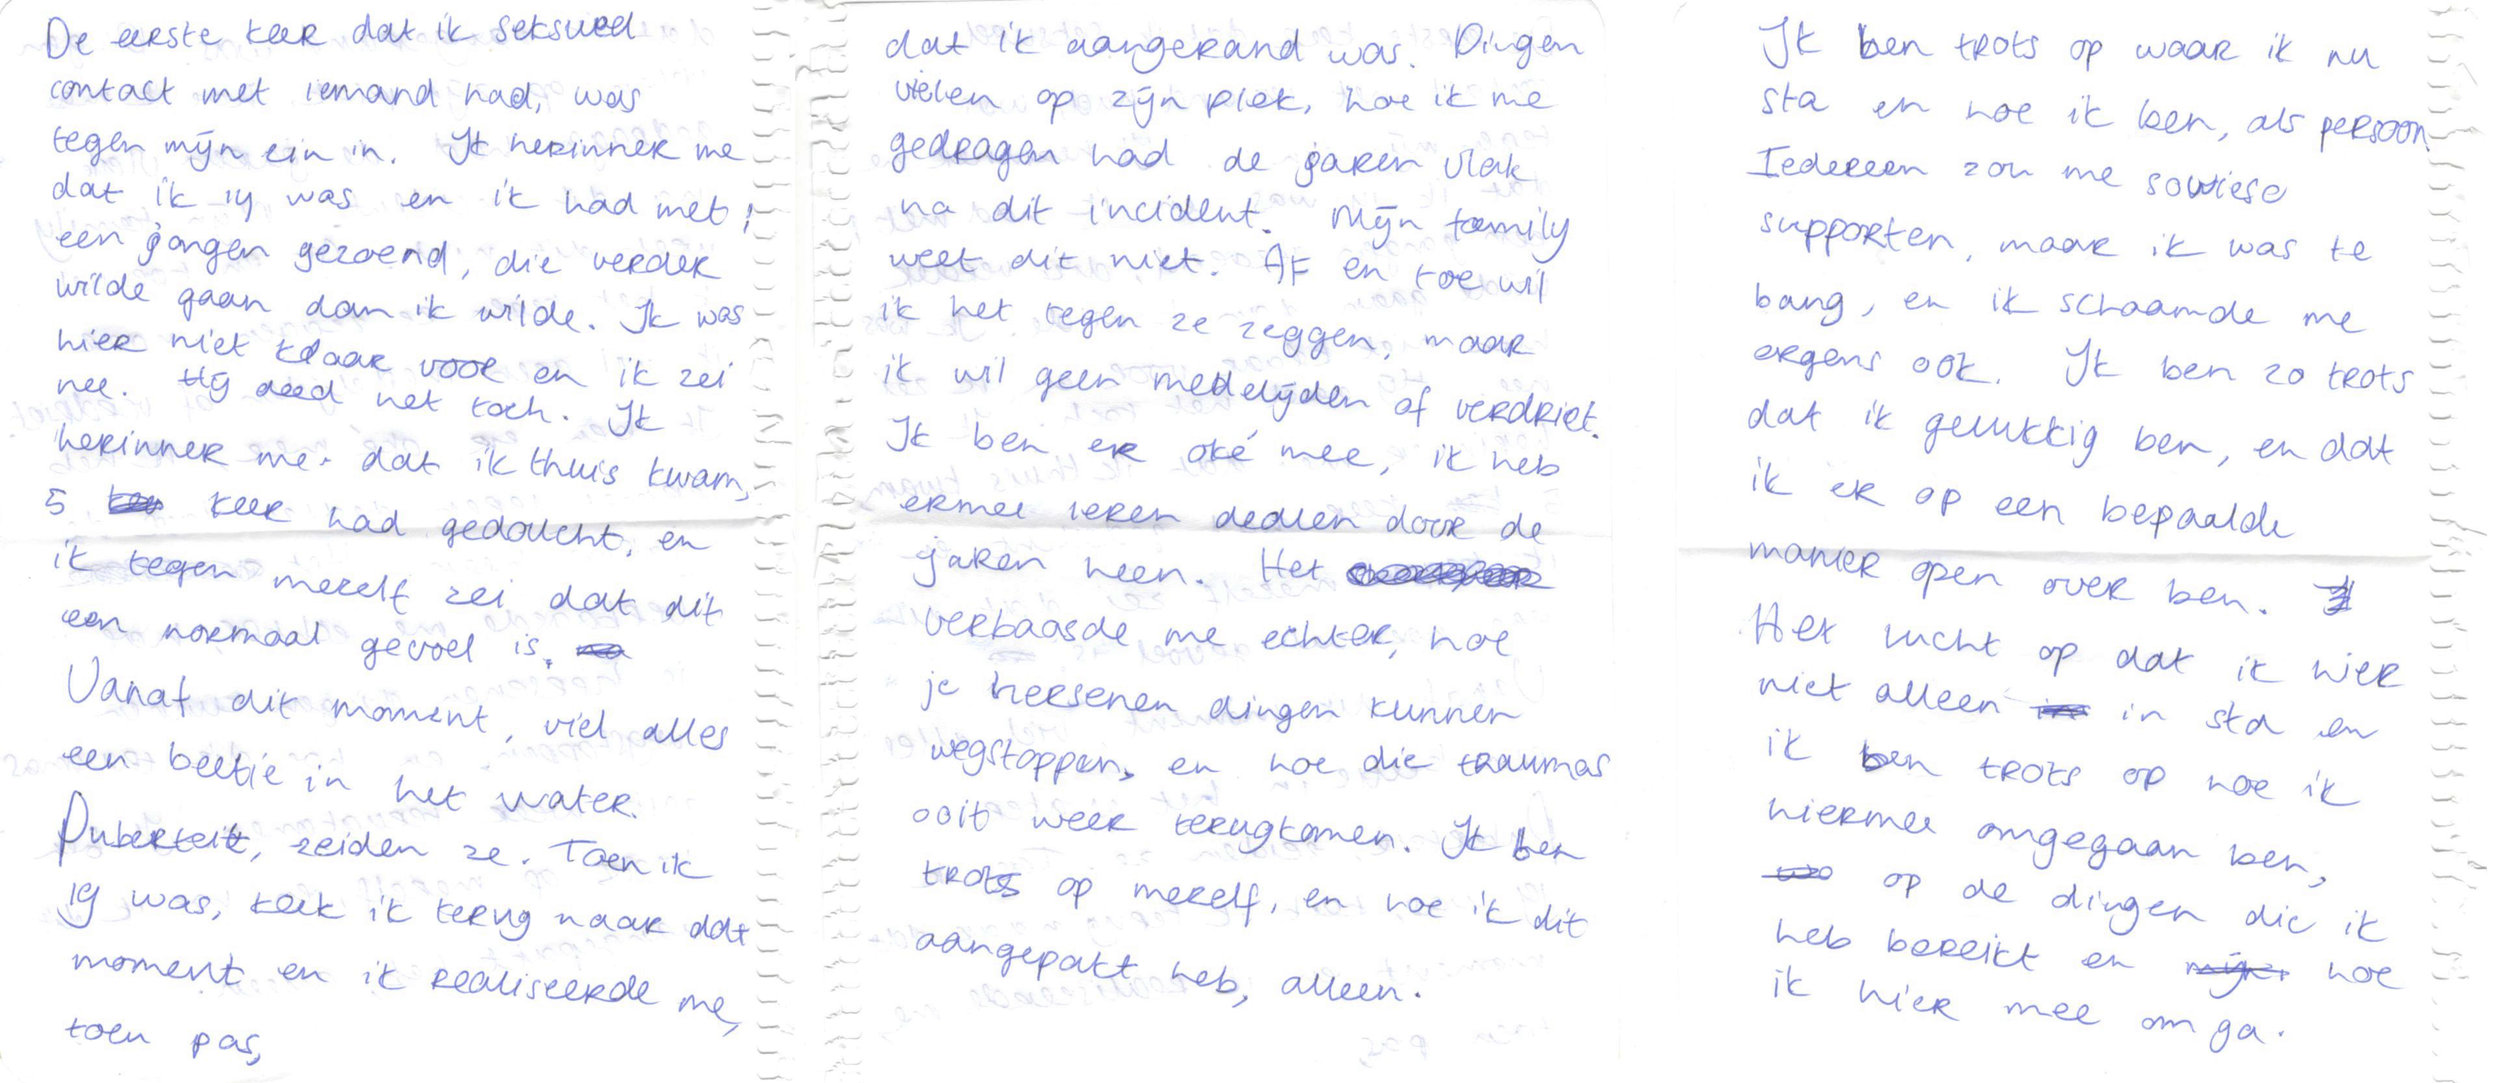 De eerste keer dat ik seksueel
contact met iemand had, was
tegen mijn zin in. Ik herinner me
dat ik 14 was en ik had met
een jongen gezoend, die verder
wilde gaan dan ik wilde. Ik was
hier niet klaar voor en ik zei
nee. Hij deed het toch. Ik
herinner me dat ik thuis kwam,
5 keer had gedoucht, en
ik tegen mezelf zei dat dit
een normaal gevoel is.
Vanaf dit moment, viel alles
een beetje in het water.
Puberteit, zeiden ze. Toen ik
19 was, keek ik terug naar dat
moment en ik realiseerde me,
toen pas,
dat ik aangerand was. Dingen
vielen op zijn plek, hoe ik me
gedragen had de jaren vlak
na dit incident. Mijn family
weet dit niet. Af en toe wil
ik het tegen ze zeggen, maar
ik wil geen medelijden of verdriet.
Ik ben er oké mee, ik heb
ermee leren dealen door de
jaren heen. Het
verbaasde me echter, hoe
je hersenen dingen kunnen
wegstoppen, en hoe die traumas
ooit weer terugkomen. Ik ben
trots op mezelf, en hoe ik dit
aangepakt heb, alleen.
Ik ben trots op waar ik nu
sta en hoe ik ben, als persoon.
Iedereen zou me sowieso
supporten, maar ik was te
bang, en ik schaamde me
ergens ook. Ik ben zo trots
dat ik gelukkig ben, en dat
ik er op een bepaalde
manier open over ben.
Het lucht op dat ik hier
niet alleen in sta en
ik ben trots op hoe ik
hiermee omgegaan ben,
op de dingen die ik
heb bereikt en hoe
ik hier mee om ga.